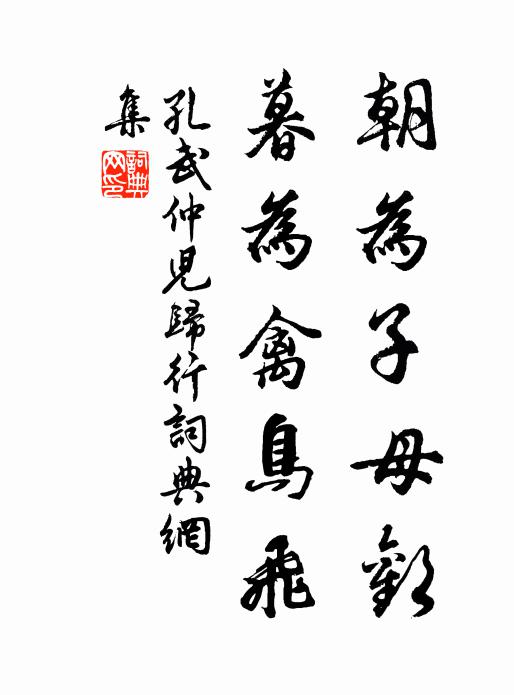 朝為子母歡
暮為禽鳥飛
孔武仲兒歸行詞典網
集
詞典
网印